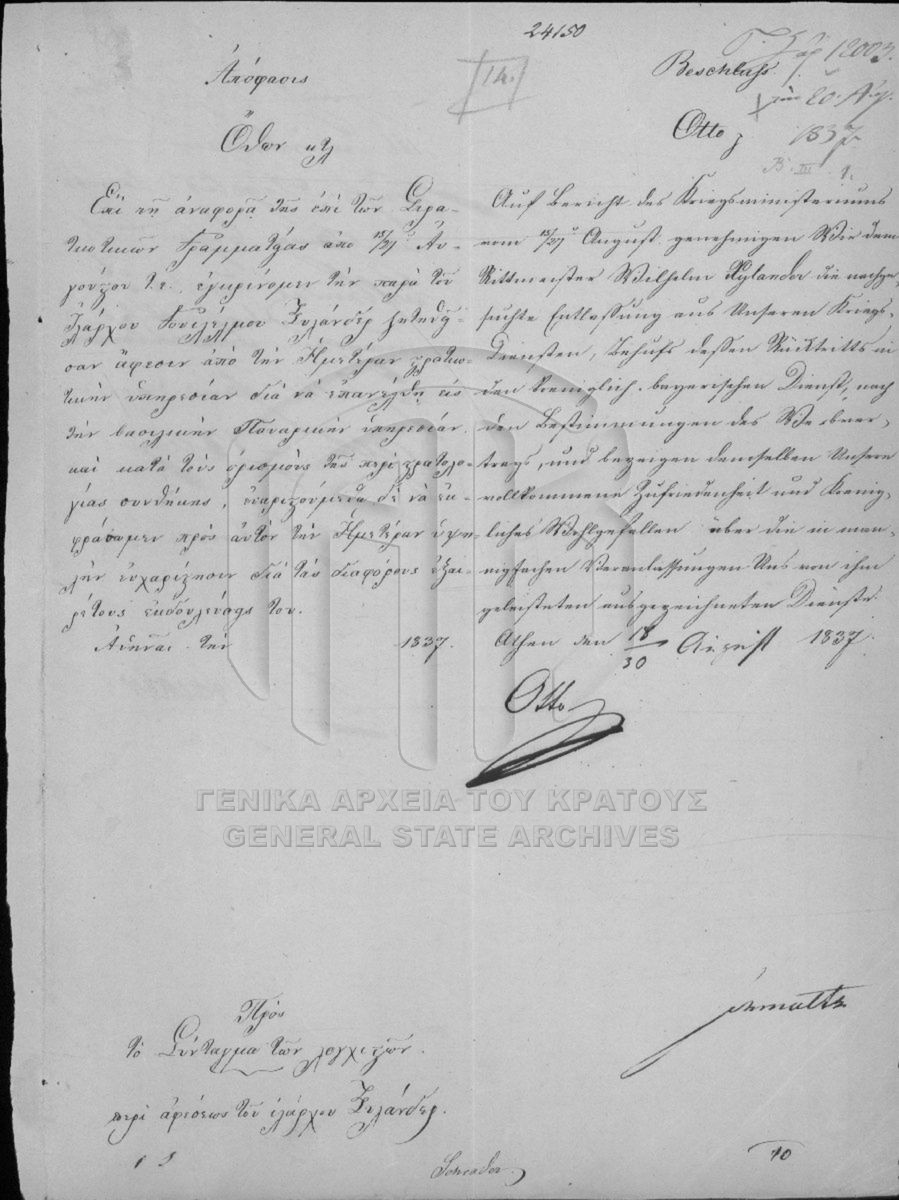 24150
Ἀπόφασις
Ὄθων κτλ
Ἐπὶ τῇ ἀναφορᾷ τῆς ἐπὶ τῶν Στρα-
τιωτικῶν Γραμματείας ἀπὸ 15/27 Αὐ-
γούστου τ. ἔ., ἐγκρίνομεν τὴν παρὰ τοῦ
Ἰλάρχου Γουλιέλμου Ξυλάνδερ ζητηθεῖ-
σαν ἄφεσιν ἀπὸ τὴν Ἡμετέραν στρατιω-
τικὴν ὑπηρεσίαν διὰ νὰ ἐπανέλθῃ εἰς
τὴν βασιλικὴν Παυαρικὴν ὑπηρεσίαν,
καὶ κατὰ τοὺς ὁρισμοὺς τῆς περὶ στρατολο-
γίας συνθήκης, εὐαρεστούμεθα δὲ νὰ ἐκ-
φράσωμεν πρὸς αὐτὸν τὴν Ἡμετέραν ὑψη-
λὴν εὐχαρίστησιν διὰ τὰς διαφόρους ἐξαι-
ρέτους ἐκδουλεύσεις του.
Ἀθῆναι τὴν 1837.
12003.
20. Αὐγ.
1837
B. III 1.
Beschluß.
Otto
Auf Bericht des Kriegsministeriums
vom 15/27 August genehmigen Wir dem
Rittmeister Wilhelm Xylander die nachge-
suchte Entlassung aus Unseren Kriegs-
Diensten, Behufs dessen Rücktritts in
den koeniglich. bayerischen Dienst, nach
den Bestimmungen des Werbver-
trags, und bezeigen demselben Unsere
vollkommene Zufriedenheit und Koenig-
liches Wohlgefallen über die in man-
nigfachen Veranlassungen Uns von ihm
geleisteten ausgezeichneten Dienste.
Athen den 18/30 August 1837.
Otto
ΓΕΝΙΚΑ ΑΡΧΕΙΑ ΤΟΥ ΚΡΑΤΟΥΣ
GENERAL STATE ARCHIVES
Schmaltz
Πρὸς
τὸ Σύνταγμα τῶν λογχιστῶν.
περὶ ἀφέσεως τοῦ ἰλάρχου Ξυλάνδερ.
10